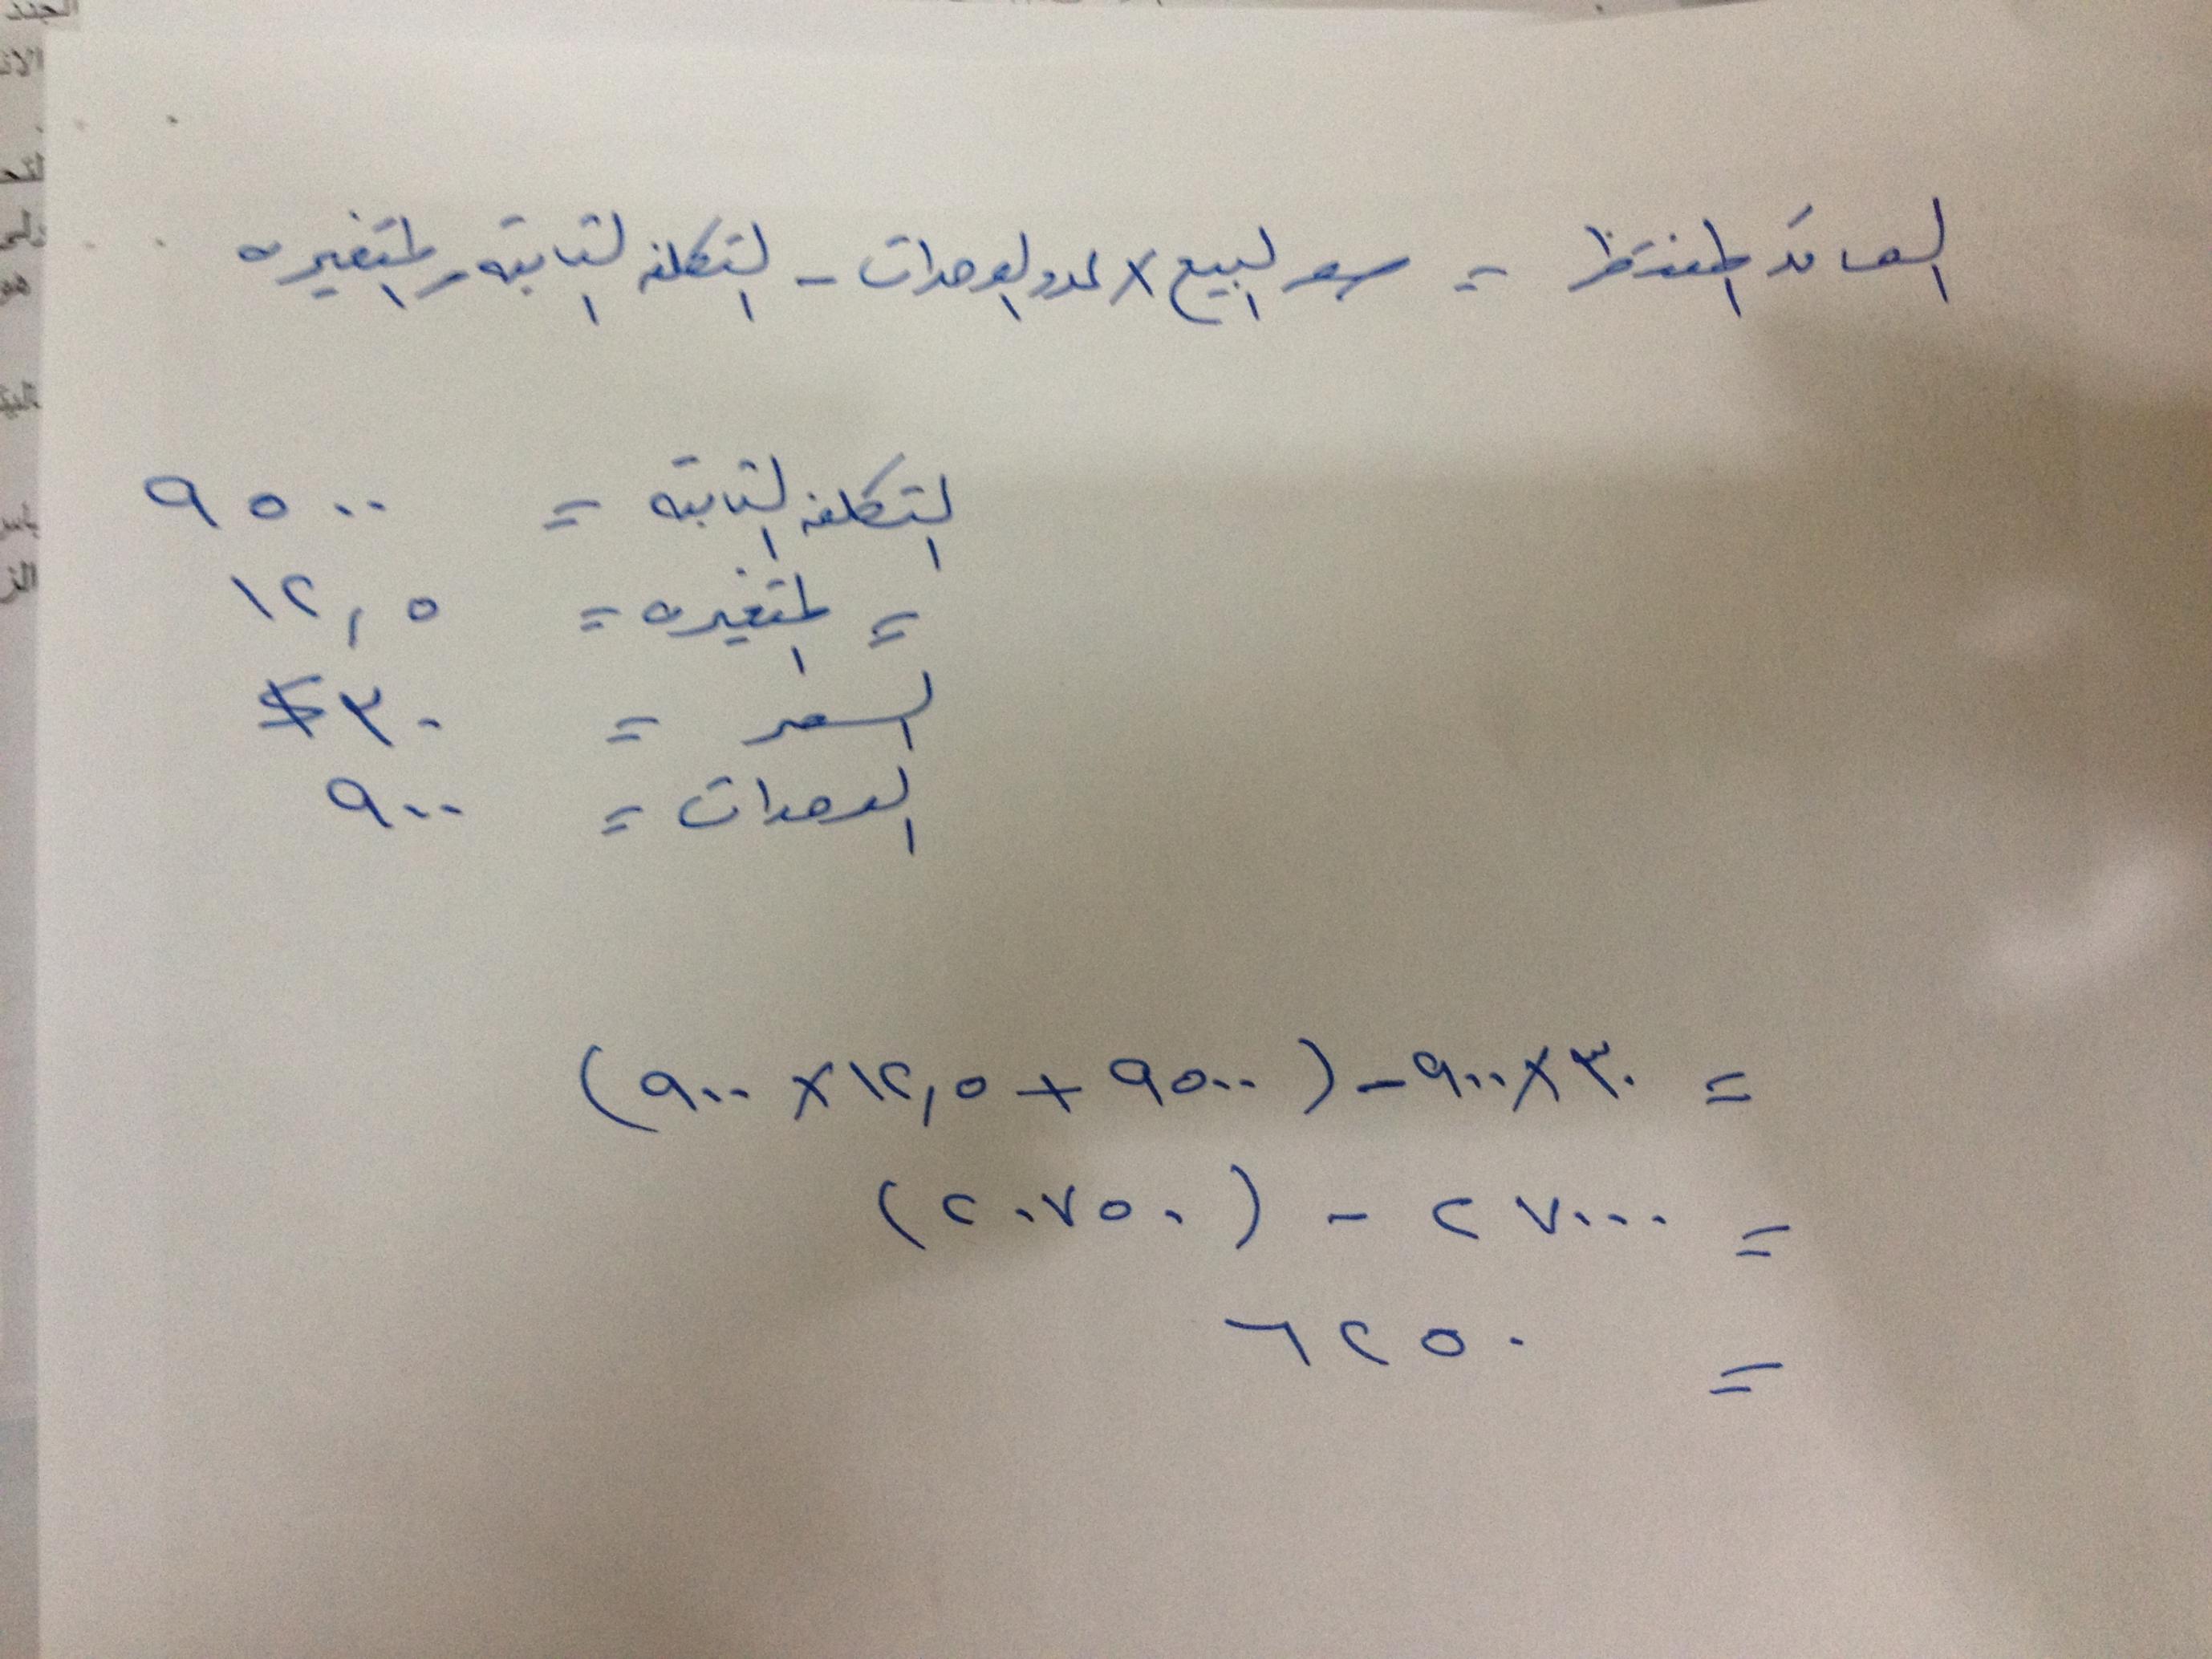 العائد المنتظر = سعر البيع × عدد الوحدات - التكلفه الثابته والمتغيره
التكلفه الثابته = ٩٥٠٠
= المتغيره = ١٢,٥
السعر = ٣٠$
الوحدات = ٩٠٠
= ٣٠×٩٠٠ - (٩٥٠٠ + ١٢,٥ × ٩٠٠)
= ٢٧٠٠٠ - (٢٠٧٥٠)
= ٦٢٥٠